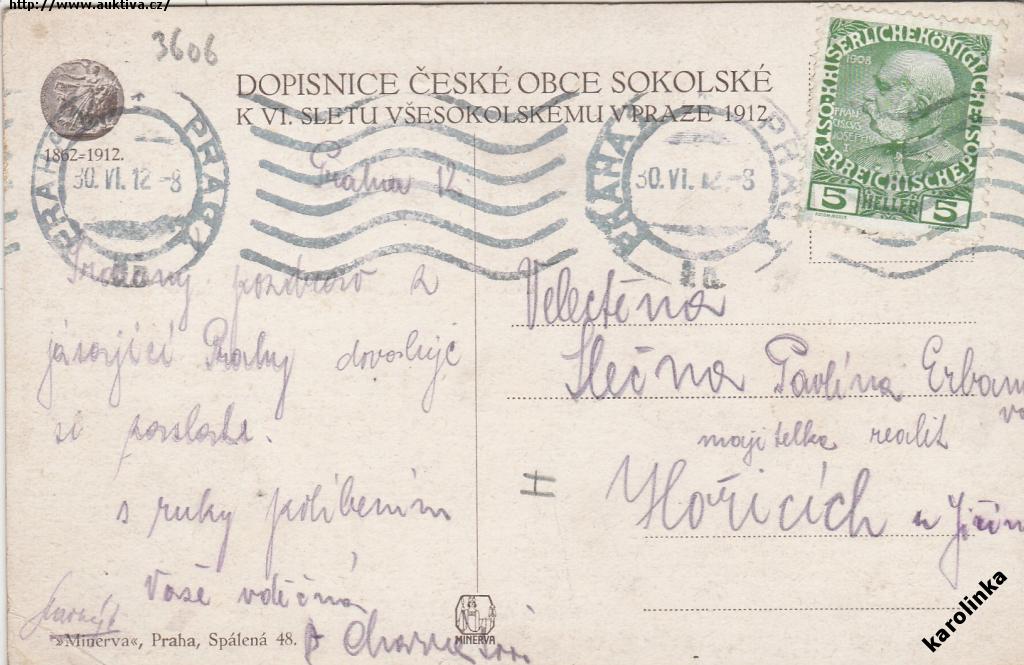 http://www.auktiva.cz/
3606
DOPISNICE ČESKÉ OBCE SOKOLSKÉ
K VI. SLETU VŠESOKOLSKÉMU V PRAZE 1912.
1862=1912.
PRAHA PRAG
30.VI.12-8
PRAHA PRAG
30.VI.12-8
KAIS.KÖNIGL. ÖSTERREICHISCHE POST
1908
5 HELLER 5
Praha 12
Srdečný pozdrav z
jásající Prahy dovoluje
si poslati.
s ruky políbením
Vaše vděčná
Velectěná
Slečna Pavlína Erbanova
majitelka realit
Hořicích u Jičína
»Minerva«, Praha, Spálená 48.
MINERVA
karolinka